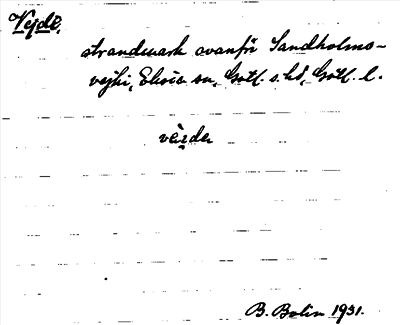 Vejde,
strandmark ovanför Sandholms-
vejki, Ekeia sn, Gotl. s. hd, Gotl. l.
vèi̯dɛ
B. Bolin 1931.